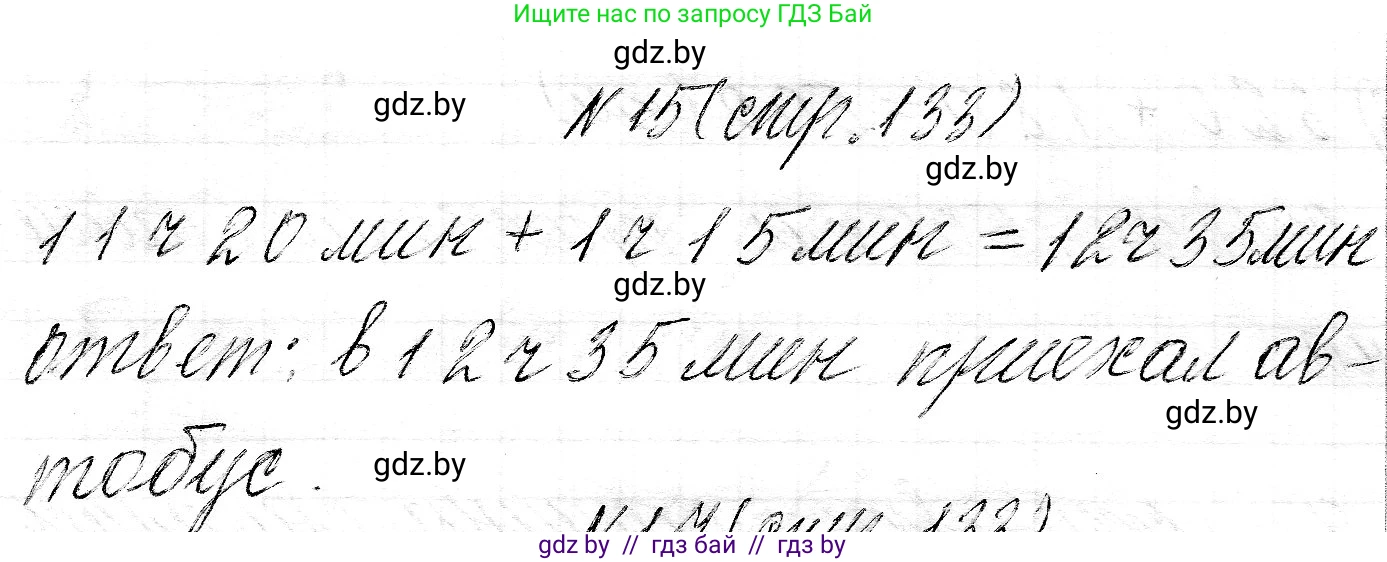 Ищите нас по запросу ГДЗ Бай
gdz.by
gdz.by
N 15 (стр. 133)
gdz.by
11 ч 20 мин + 1 ч 15 мин = 12 ч 35 мин
gdz.by
ответ: в 12 ч 35 мин приехал ав-
gdz.by
тобус.
gdz.by
N 17 (стр. 133)
gdz.by // гдз бай // гдз by